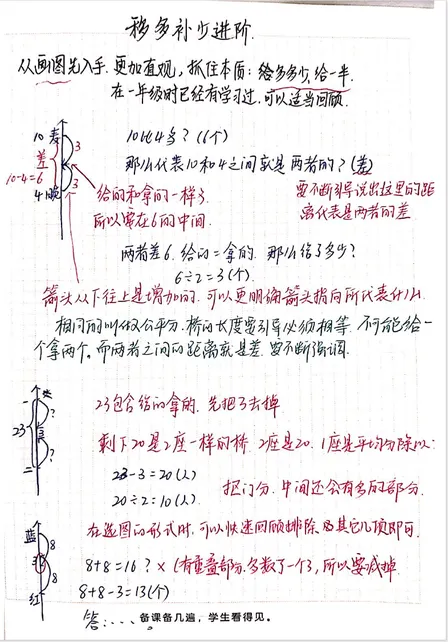 移多补少进阶.
从画图先入手.更加直观,抓住本质:给多多少,给一半.
在一年级时已经有学习过.可以适当回顾.
10 麦
差
10-4=6
4 婉
3
3
10比4多?(6个)
那么代表10和4之间就是两者的?(差)
给的和拿的一样多.
所以要在6的中间.
要不断引导说出这里的距
离代表是两者的差
两者差6.给的=拿的.那么给了多少?
6÷2=3(个)
箭头从下往上是增加的.可以更明确箭头指向所代表什么.
相同的叫做公平分.桥的长度要引导必须相等.不可能给一
个拿两个.而两者之间的距离就是差.要不断强调.
一
23
二
?
?
23包含给的拿的.先把3去掉
剩下20是2座一样的桥.2座是20.1座是平均分除以2
23-3=20(人)
20÷2=10(人)
把门分.中间还会有多的部分.
在选图的形式时,可以快速回顾排除.及其它几顶即可.
蓝
8
8
红
8+8=16?×(有重叠部分.多数了一个3,所以要减掉
8+8-3=13(个)
答:....
备课备几遍,学生看得见。